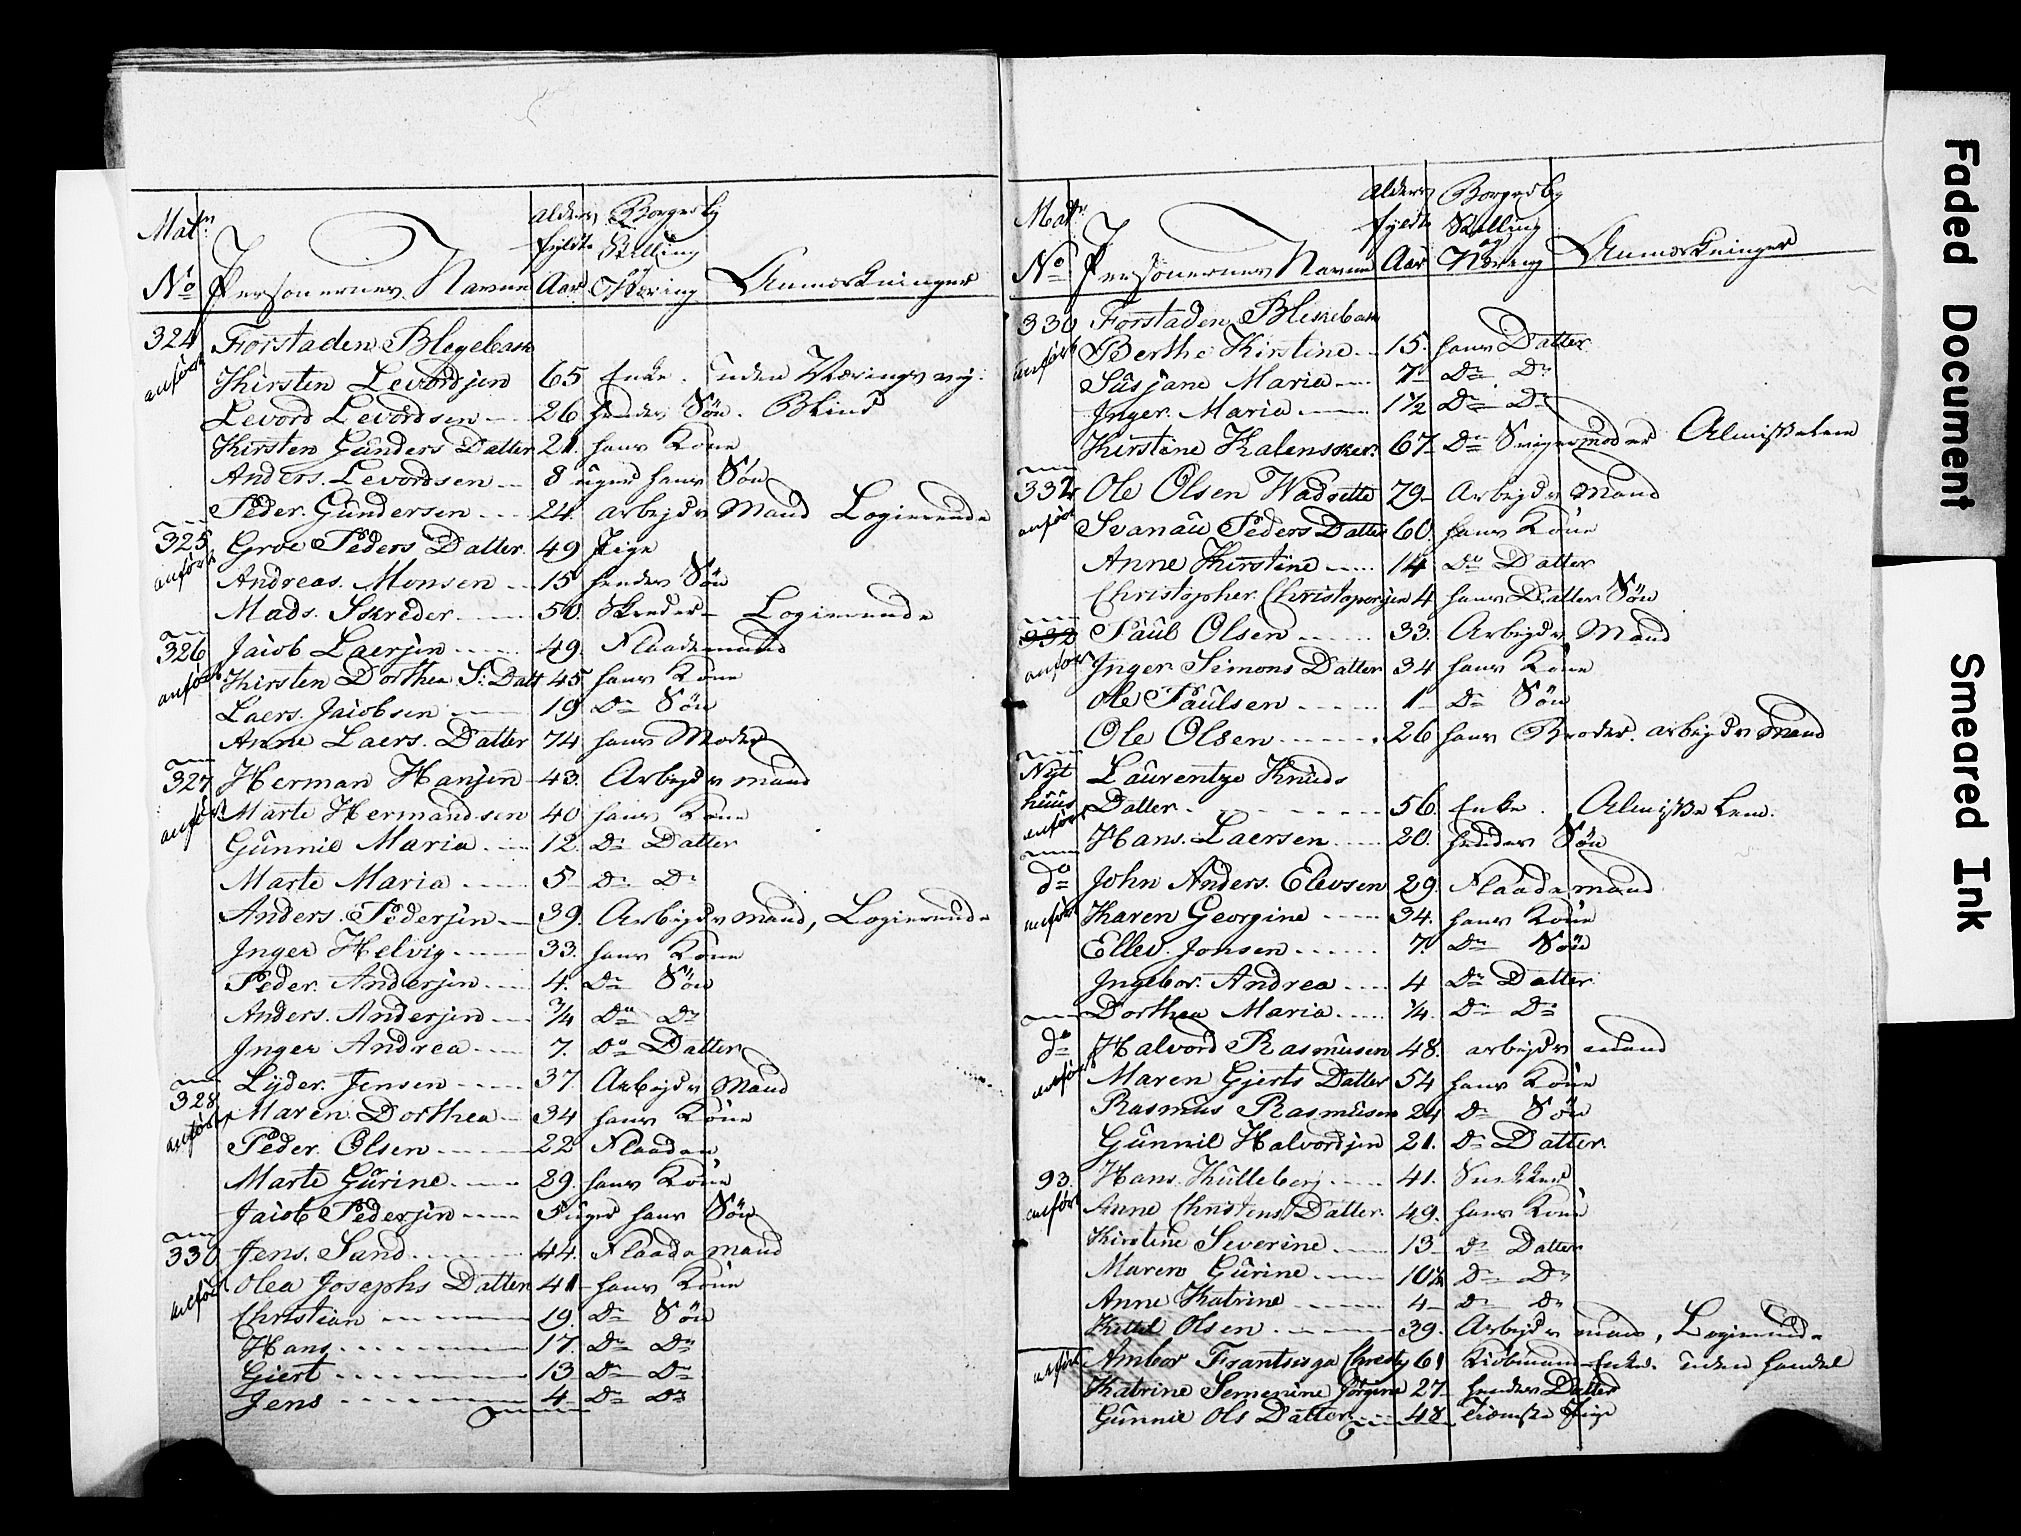 Matr: Personernes Navne Alders fyldte Aar Borgerlig Stilling og Næring Anmærkninger
No
324 Forstaden Blegebak
anført Kirsten Levordsen 65 Enke. uden Nærings vej.
Levord Levordsen 26 hendes Søn. Blind
Kirsten Gunders Datter 21. hans Kone
Anders. Levordsen 8 uger hans Søn
Peder. Gundersen 24. arbejds Mand Logierende
325 Groe Peders Datter. 49 Pige
anført Andreas. Monsen 15 hendes Søn
Mads. Skreder 50. Skreder Logierende
326 Jacob Laersen 49. Flaademand
anført Kirsten Dorthea S: Datt 45. hans Kone
Laers. Jacobsen 19 Do Søn
Anne Laers. Datter 74 hans Moder
327 Herman Hansen 43. Arbejds mand
anført Marte Hermandsen 40 hans Kone
Gunnil Maria 12. Do Datter
Marte Maria 5 Do Do
Anders. Pedersen 39. Arbejds mand, Logierende
Inger Helvig 33. hans Kone
Peder. Andersen 4. Do Søn
Anders. Andersen 3/4 Do Do
Inger Andrea 7. Do Datter
328 Lyder. Jensen 37. Arbejds Mand
anført Maren Dorthea 34 hans Kone
Peder. Olsen 22 Flaaden
Marte Gurine 29. hans Kone
Jacob Pedersen 5 uger hans Søn
330 Jens. Sand 44. Flaade mand
anført Olea Josephs Datter 41 hans Kone
Christian 19. Do Søn
Hans 17. Do Do
Giert 13 Do Do
Jens 4 Do Do
Matr: Personernes Navne Alders fyldte Aar Borgerlig Stilling og Næring Anmærkninger
No
330 Forstaden Blekebak
anført Berthe Kirstine 15. hans Datter
Susjane Maria 7 Do Do
Inger. Maria 1 1/2 Do Do
Kirstine Kalensker: 67 Do Svigermoder Almisselem
332 Ole Olsen Wadsette 79 Arbejds Mand
anført Svanau Peders Datter 60. hans Kone
Anne Kirstine 14 Do Datter
Christopher. Christopersen 4 hans Datter Søn
332 Paul Olsen 33. Arbejds Mand
anført Inger Simons Datter 34 hans Kone
Ole Paulsen 1 Do Søn
Ole Olsen 26 hans Broder. arbejds Mand
Nyt Laurentze Knuds
huus Datter 56. Enke. Almisse Lem.
anført Hans. Laersen 20. hendes Søn
do John Anders. Elevsen 29. Flaade mand
anført Karen Georgine 34. hans Kone
Ellev. Jonsen 7. Do Søn
Ingebor. Andrea 4 Do Datter
Dorthea Maria 1/4. Do Do
do Halvord Rasmusen 48. arbejds mand
anført Maren Gierts Datter 54 hans Kone
Rasmus Rasmusen 24 Do Søn
Gunnil Halvordsen 21. Do Datter
93. Hans. Kulleberg 41. Snekker
anført Anne Christens Datter. 49. hans Kone
Kirstine Severine 13 do Datter
Maren Gurine 10 1/2 Do Do
Anne Katrine 4 Do Do
Kittil Olsen 39. Arbejds mand, Logierende
anført Ambor Frantsisga Christy 61 Kiøbmand Enke. uden handel
Katrine Semenine Jørgine 27 hendes Datter
Gunnil Ols Datter 48 Tieneste Pige
Faded Document
Smeared Ink